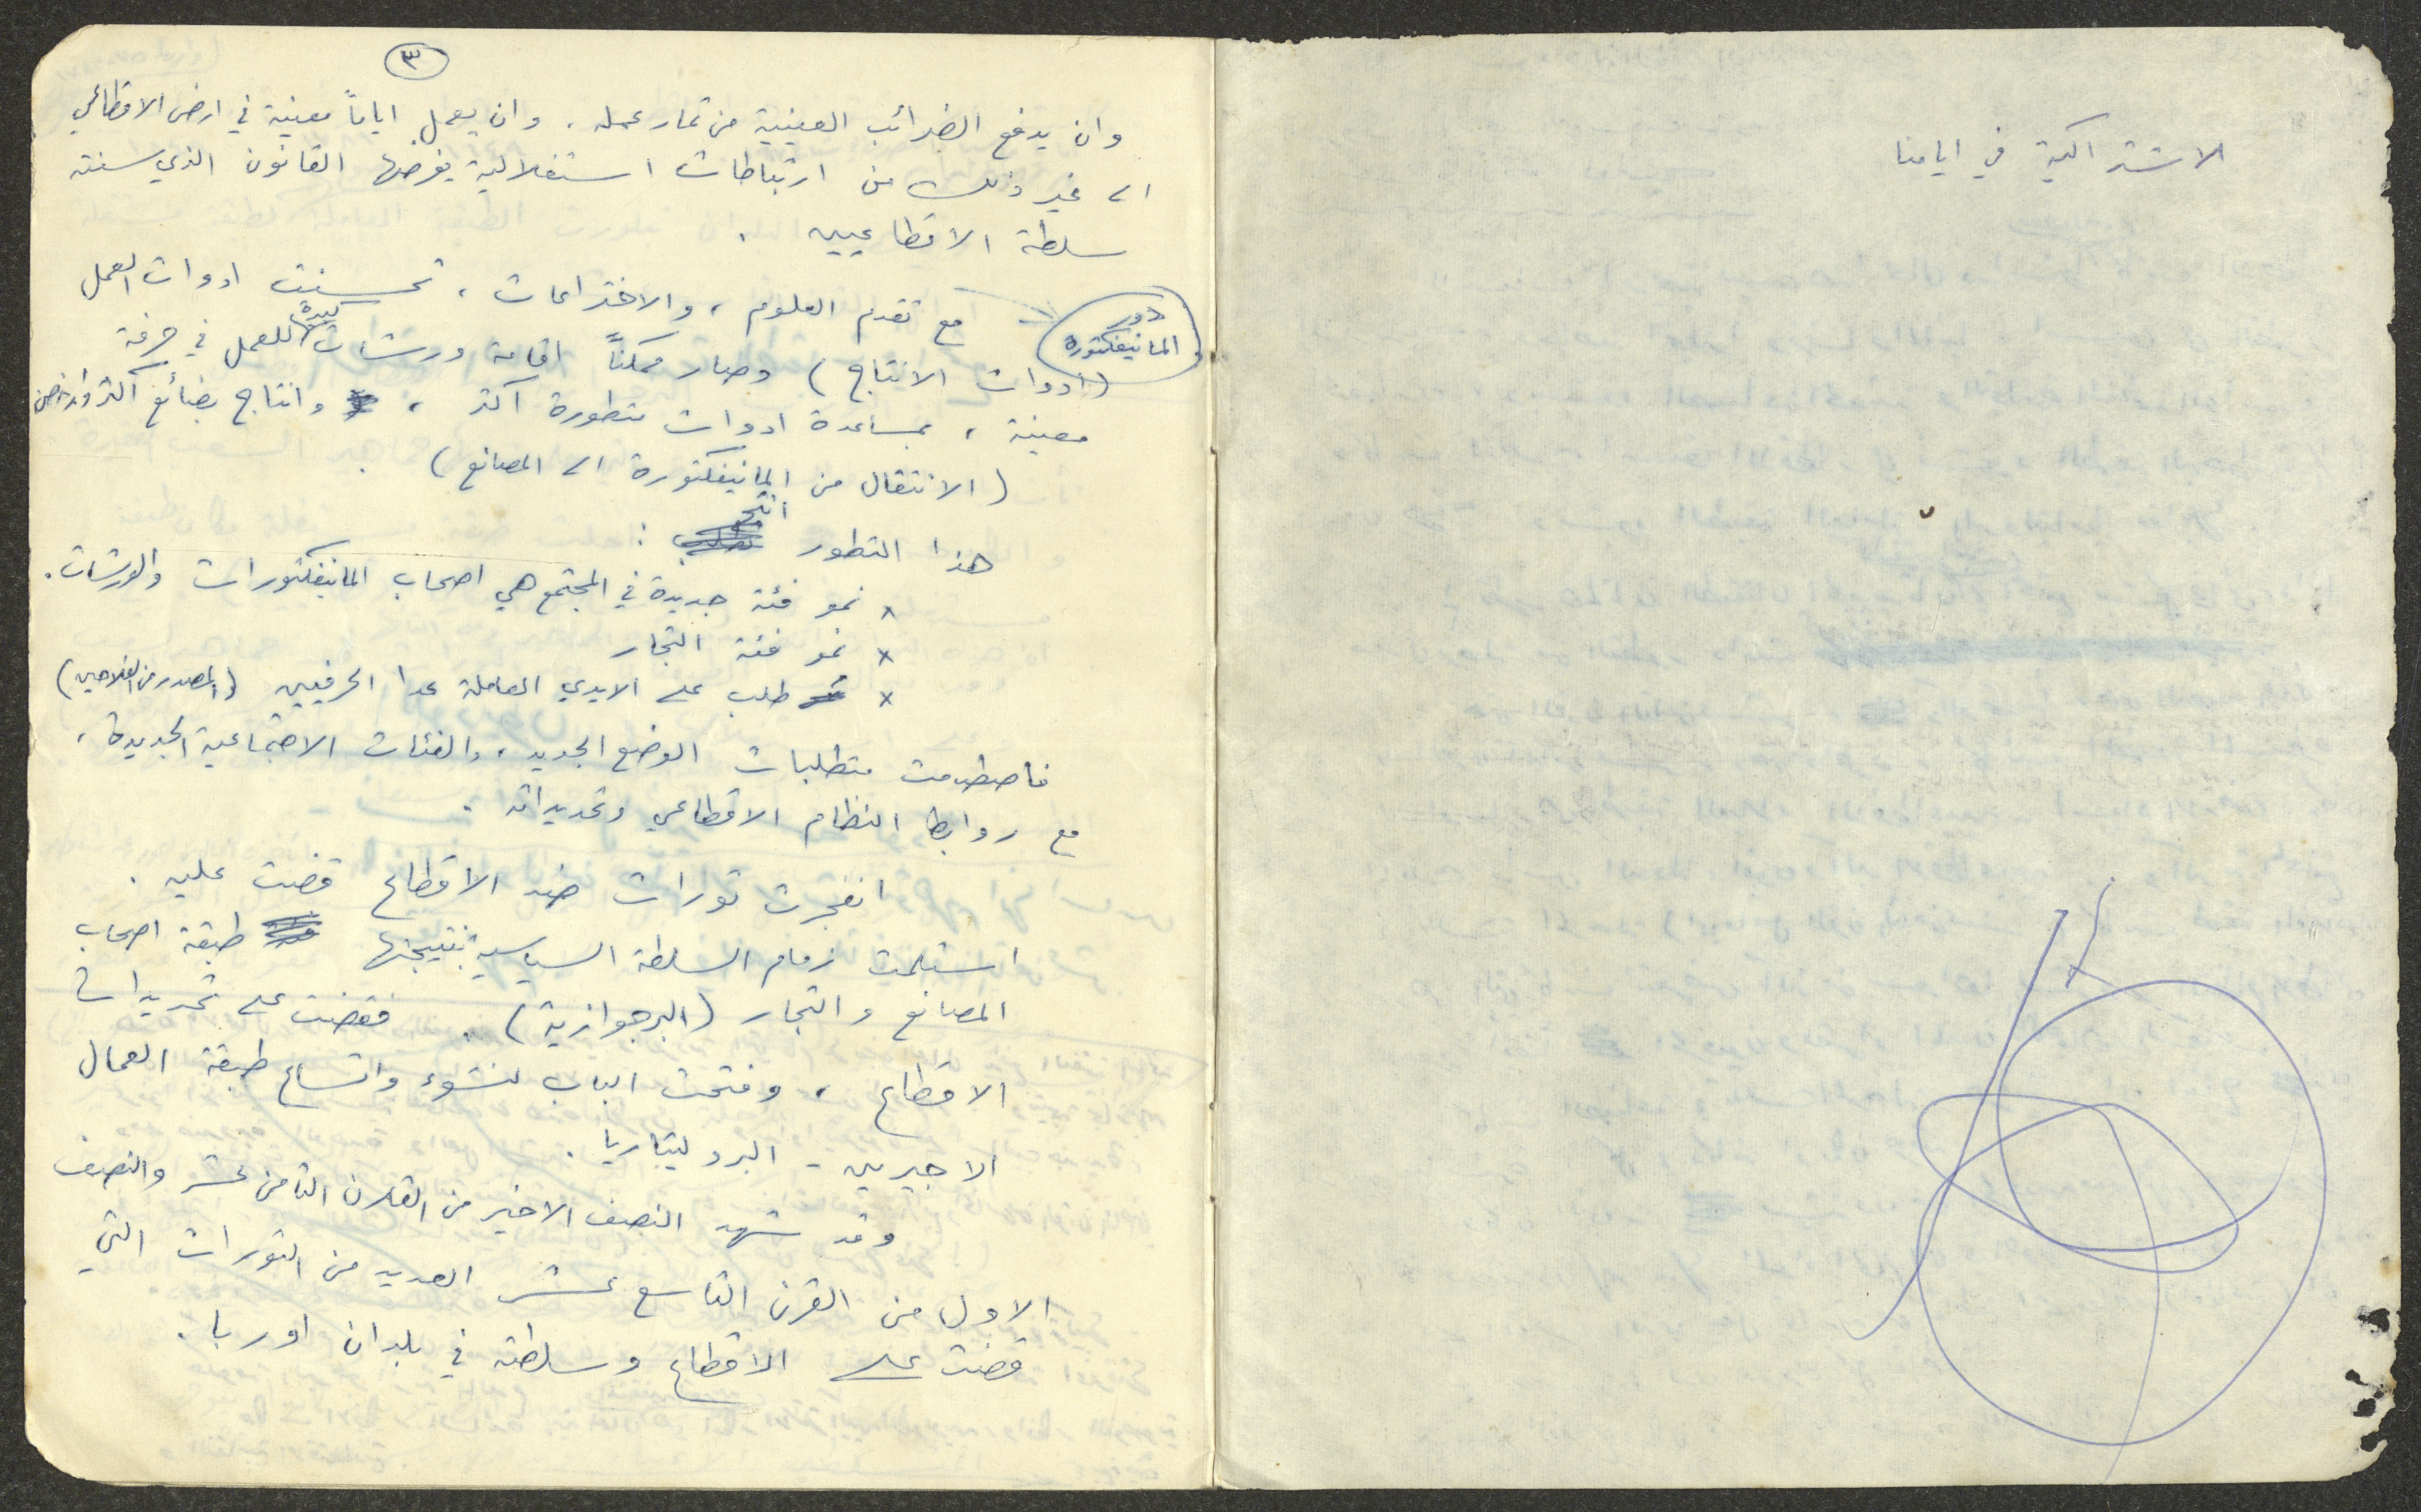 الاشتراكية في ايامنا
٣
وان يدفع الضرائب العينية من ثمار عمله. وان يعمل اياماً معينة في ارض الاقطاعي
الى غير ذلك من ارتباطات استغلالية يفرضها القانون الذي سنته
سلطة الاقطاعيين.
دور المانيفكتورة
مع تقدم العلوم، والاختراعات، تحسنت ادوات العمل
(ادوات الانتاج) وصار ممكناً اقامة ورشات كبيرة للعمل في حرفة
معينة، بمساعدة ادوات متطورة اكثر، وانتاج بضائع اكثر وارخص
(الانتقال من المانيفكتورة الى المصانع).
هذا التطور انتج:
x نمو فئة جديدة في المجتمع هي اصحاب المانيفكتورات والورشات.
x نمو فئة التجار
x طلب على الايدي العاملة عدا الحرفيين (المصدر من الفلاحين)
فاصطدمت متطلبات الوضع الجديد، والفئات الاجتماعية الجديدة،
مع روابط النظام الاقطاعي وتحديداته.
انفجرت ثورات ضد الاقطاع قضت عليه.
استلمت زمام السلطة السياسية بنتيجتها طبقة اصحاب
المصانع والتجار (البرجوازية). فقضت على تحديدات
الاقطاع، وفتحت الباب لنشوء واتساع طبقة العمال
الاجيرين - البروليتاريا.
وقد شهد النصف الاخير من القرن الثامن عشر والنصف
الاول من القرن التاسع عشر العديد من الثورات التي
قضت على الاقطاع وسلطته في بلدان اوربا.